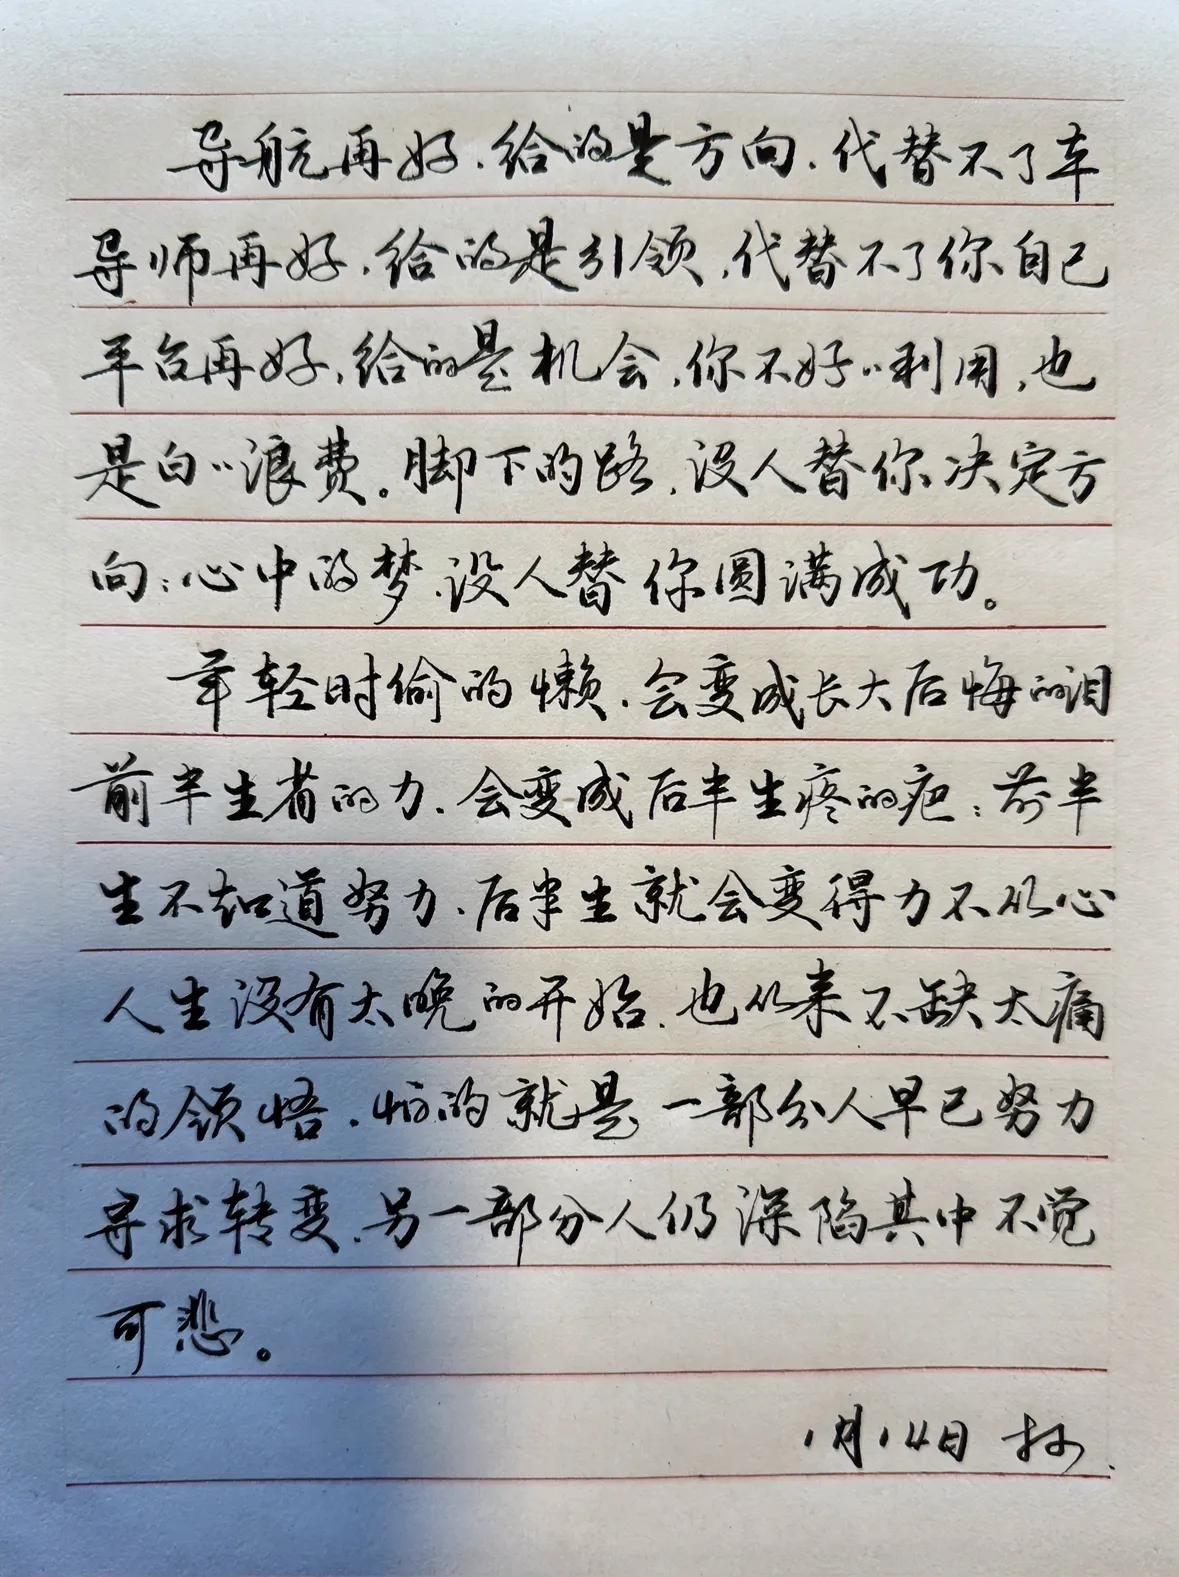 导航再好,给的是方向,代替不了车
导师再好,给的是引领,代替不了你自己
平台再好,给的是机会,你不好〃利用,也
是白〃浪费。脚下的路,没人替你决定方
向;心中的梦,没人替你圆满成功。
年轻时偷的懒,会变成长大后悔的泪
前半生省的力,会变成后半生疼的疤;前半
生不知道努力,后半生就会变得力不从心
人生没有太晚的开始,也从来不缺太痛
的领悟,怕的就是一部分人早已努力
寻求转变,另一部分人仍深陷其中不觉
可悲。
1月14日 抄